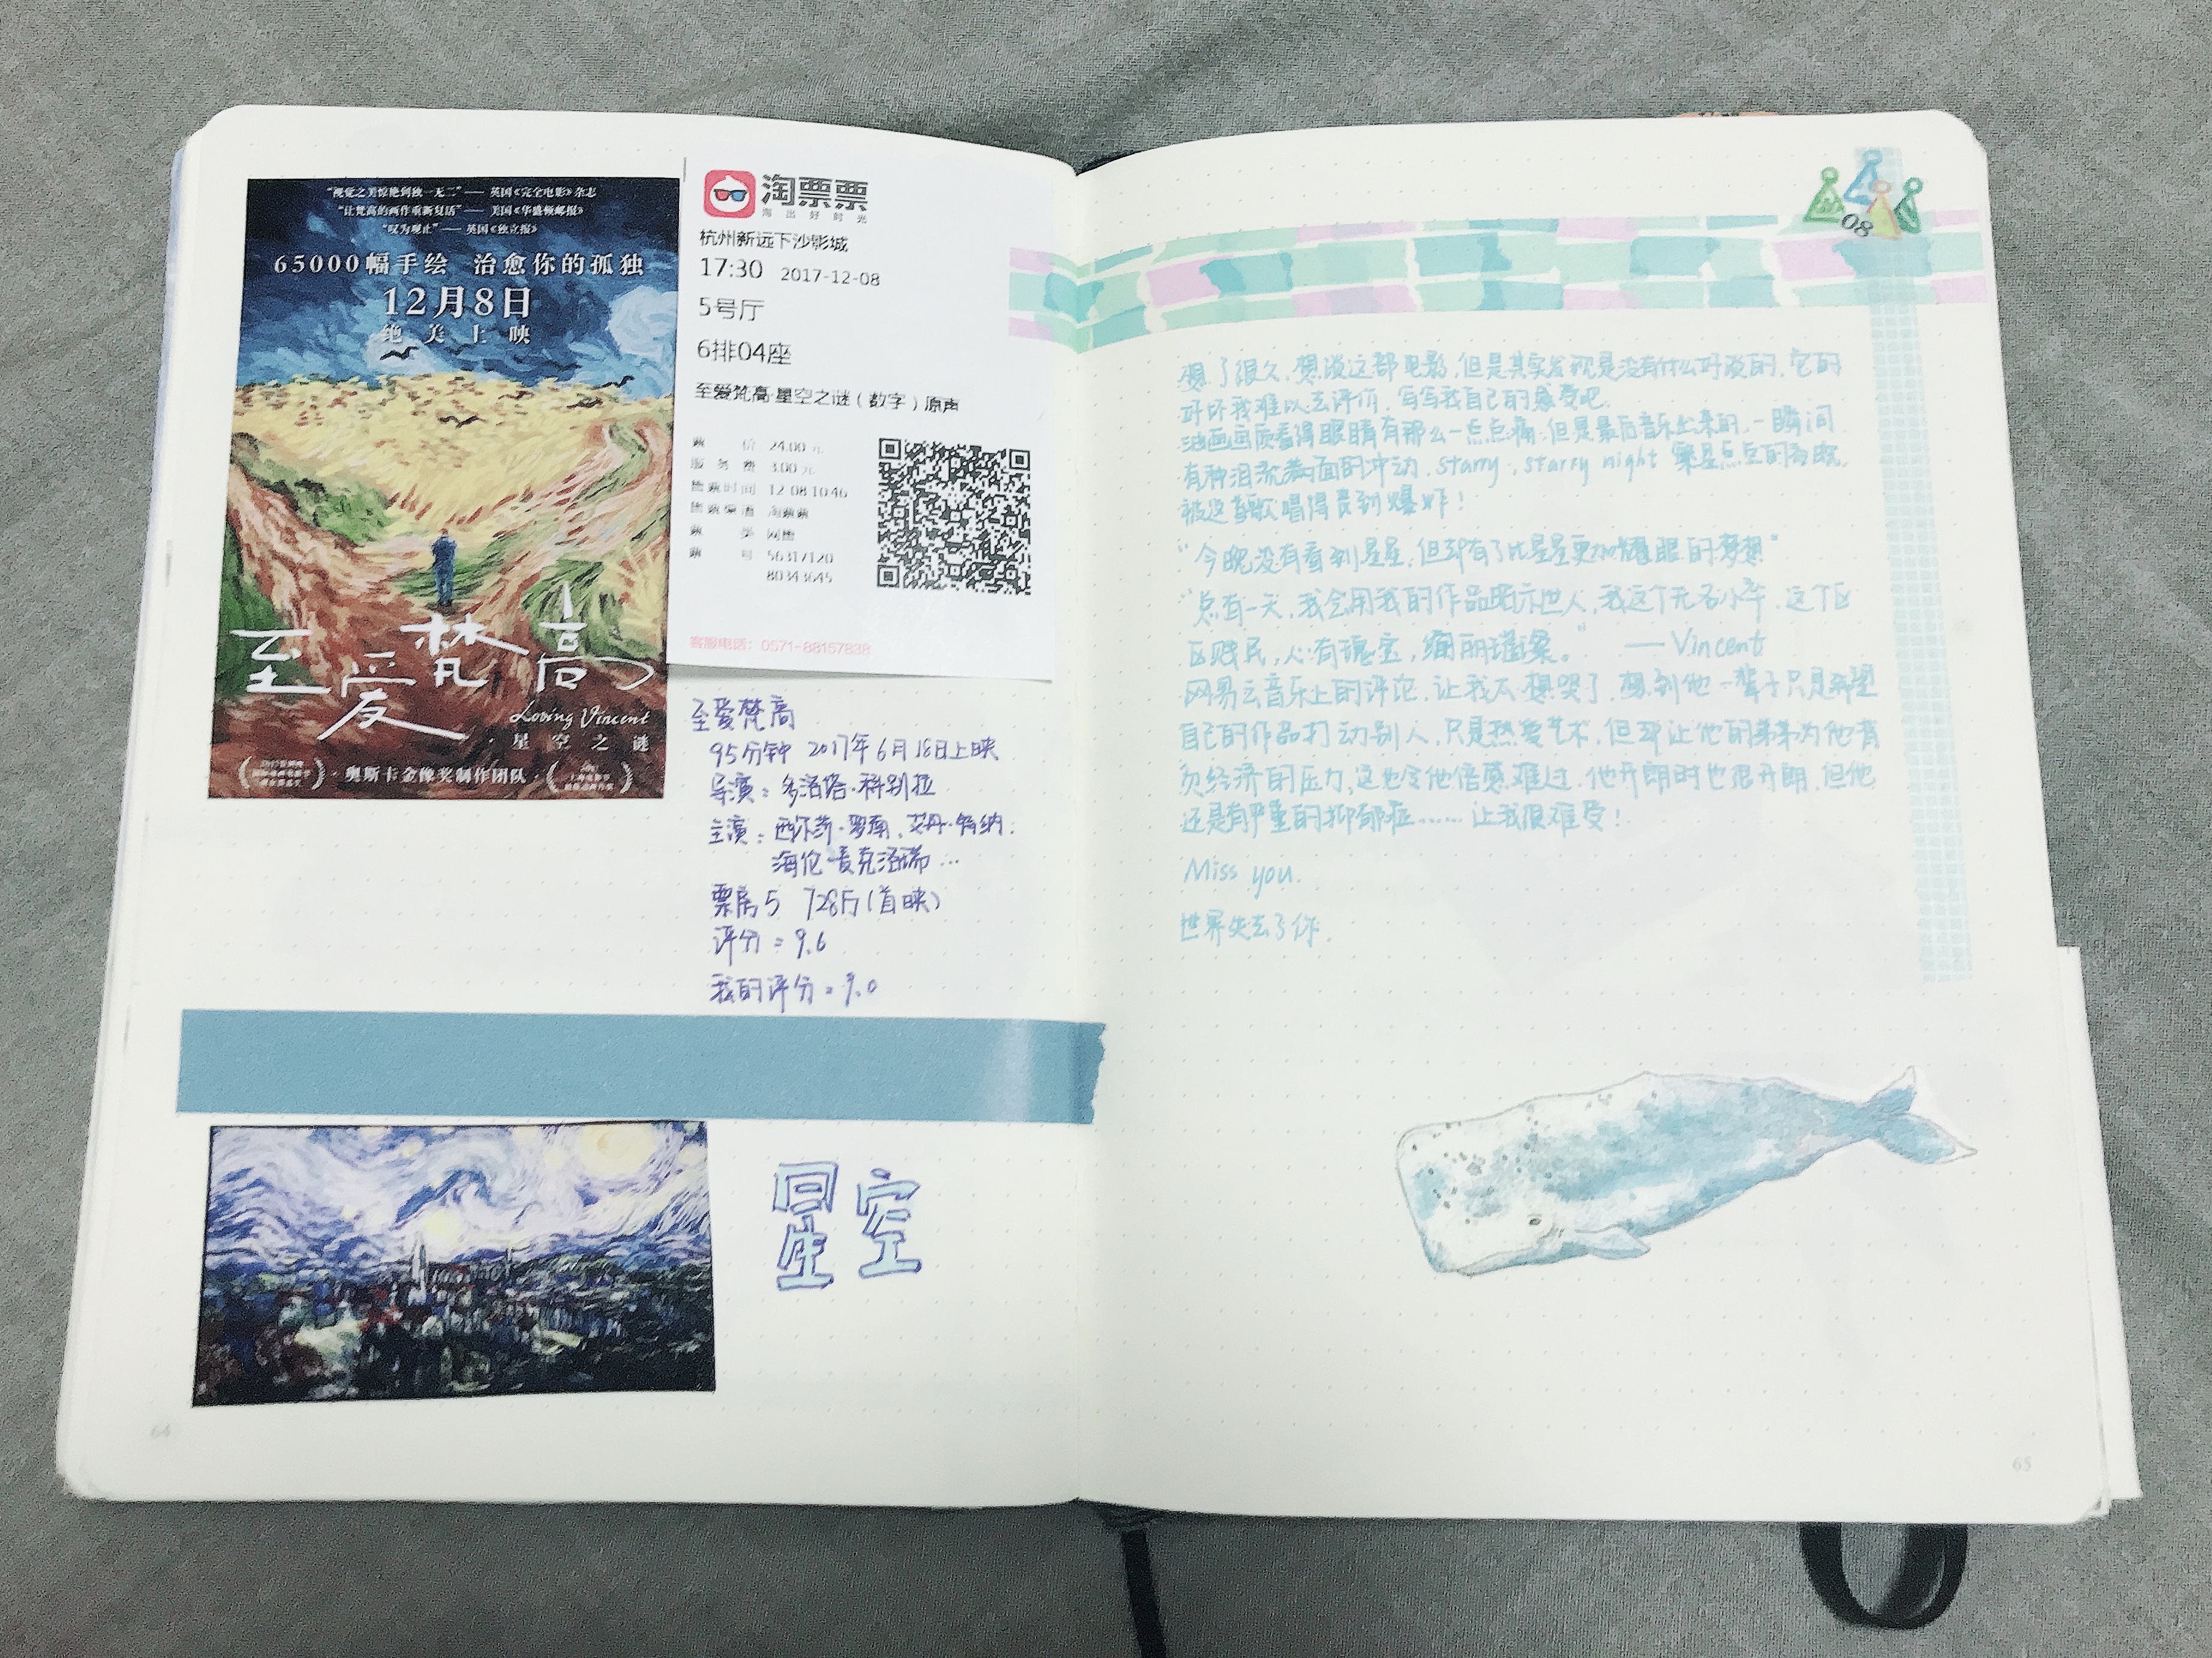 “视觉之美惊艳到独一无二”—— 英国《完全电影》杂志
“让梵高的画作重新复活”—— 美国《华盛顿邮报》
“叹为观止”—— 英国《独立报》
65000幅手绘 治愈你的孤独
12月8日
绝美上映
至爱梵高
Loving Vincent
·星空之谜
·奥斯卡金像奖制作团队·
淘票票
淘出好时光
杭州新远下沙影城
17:30 2017-12-08
5号厅
6排04座
至爱梵高·星空之谜（数字）原声
票价 24.00 元
服务费 3.00 元
售票时间 12-08 10:46
售票渠道 淘票票
票类 网售
票号 56317120
80343645
客服电话：0571-88157838
至爱梵高
95分钟 2017年6月18日上映
导演：多洛塔·科别拉
主演：西尔莎·罗南、艾丹·特纳、
海伦·麦克洛瑞…
票房5 728万（首映）
评分：9.6
我的评分：9.0
星空
64
08
想了很久，想谈这部电影，但是其实发现是没有什么好谈的，它的
好坏我难以去评价，写写我自己的感受吧。
油画画质看得眼睛有那么一点点痛，但是最后音乐出来的一瞬间
有种泪流满面的冲动，starry，starry night 繁星点点的夜晚，
被这首歌唱得 到爆炸！
“今晚没有看到星星，但却有了比星星更加耀眼的梦想”
“总有一天，我会用我的作品昭示世人，我这个无名小卒，这个区
区贱民，心有瑰宝，绚丽璀璨。” —Vincent
网易云音乐上的评论，让我太想哭了，想到他一辈子只是希望
自己的作品打动别人，只是热爱艺术，但却让他的弟弟为他背
负经济的压力，这也令他倍感难过，他开朗时也很开朗，但他
还是有严重的抑郁症……让我很难受！
Miss you.
世界失去了你.
65